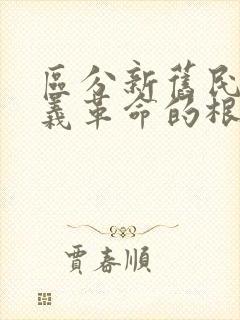 區分新舊民
義革命的根
賈春順